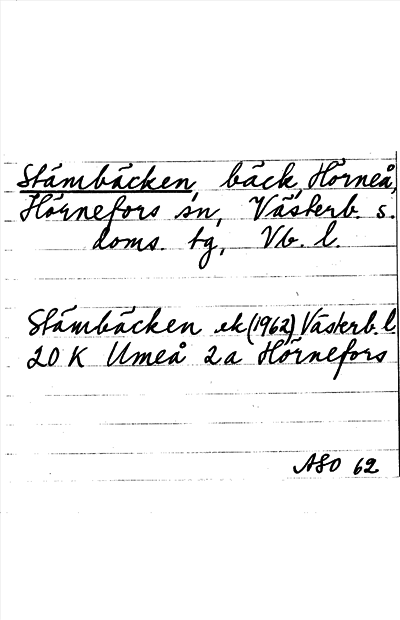 Stämbäcken, bäck, Hörneå,
Hörnefors sn, Västerb. s.
doms. tg, Vb. l.
Stämbäcken ek (1962) Västerb. l
20 K Umeå 2a Hörnefors
ASO 62